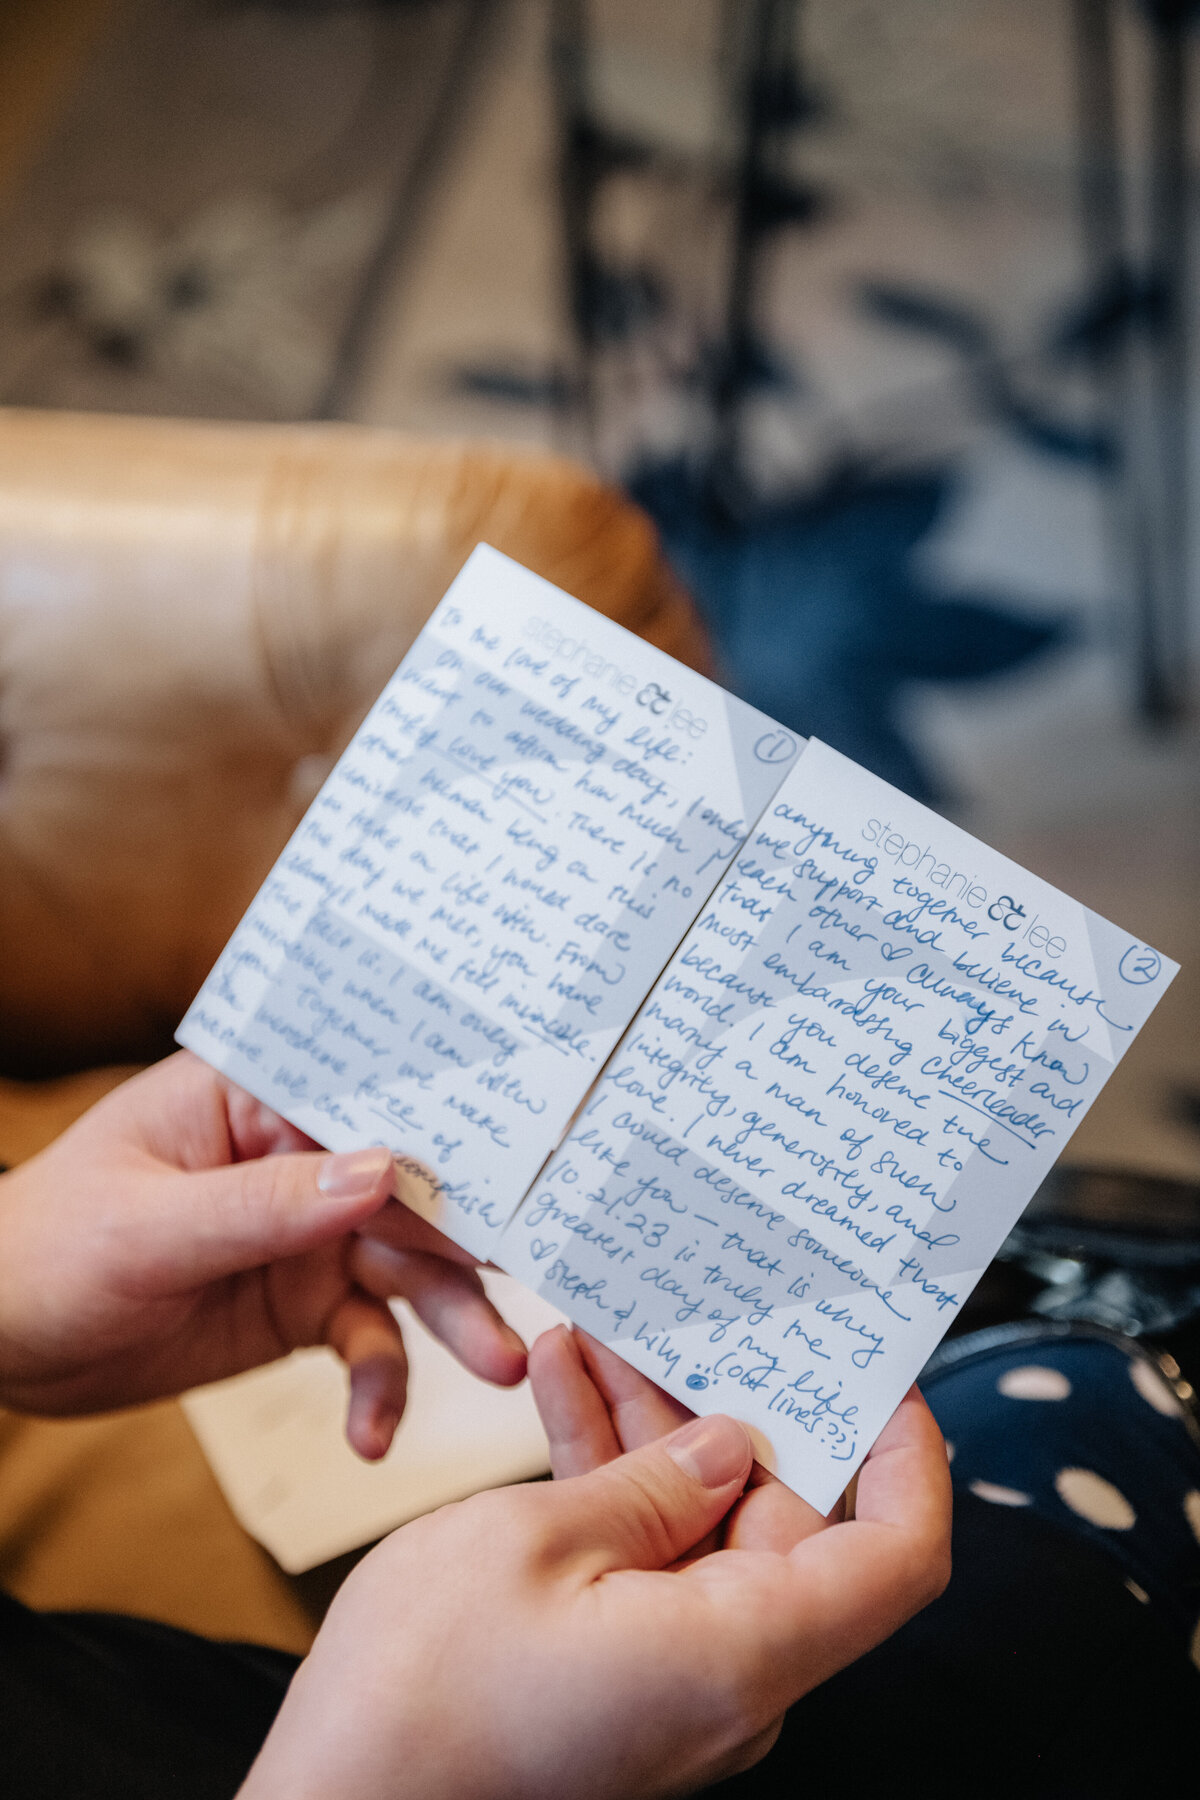 stephanie & lee
1
To the love of my life:
on our wedding day, I only
want to affirm how much I
truly love you. There is no
other human being on this
universe that I would dare
to take on life with. From
the day we met, you have
always made me feel invincible.
The fact is, I am only
invincible when I am with
you. Together we make
an invincible force of
nature. We can accomplish
stephanie & lee
2
anything together because
we support and believe in
each other ♡ Always know
that I am your biggest and
most embarassing cheerleader
because you deserve the
world. I am honored to
marry a man of such
integrity, generosity, and
love. I never dreamed that
I could deserve someone
like you — that is why
10.21.23 is truly the
greatest day of my life.
(our lives??)
♡ Steph & Lily